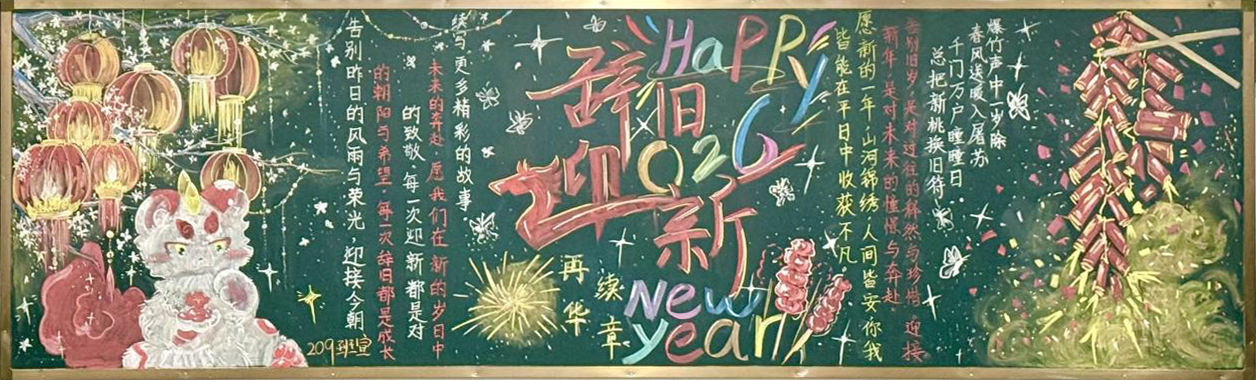 告别昨日的风雨与荣光，迎接今朝
的朝阳与希望。每一次辞旧都是成长
的致敬，每一次迎新都是对
未来的奔赴。愿我们在新的岁日中
续写更多精彩的故事
209班宣
HaPPRy
辞旧
2026
迎新
再续华章
New
year
爆竹声中一岁除
春风送暖入屠苏
千门万户瞳瞳日
总把新桃换旧符
告别旧岁，是对过往的释然与珍惜，迎接
新年，是对未来的憧憬与奔赴
愿新的一年，山河锦绣，人间皆安，你我
皆能在平日中收获不凡。